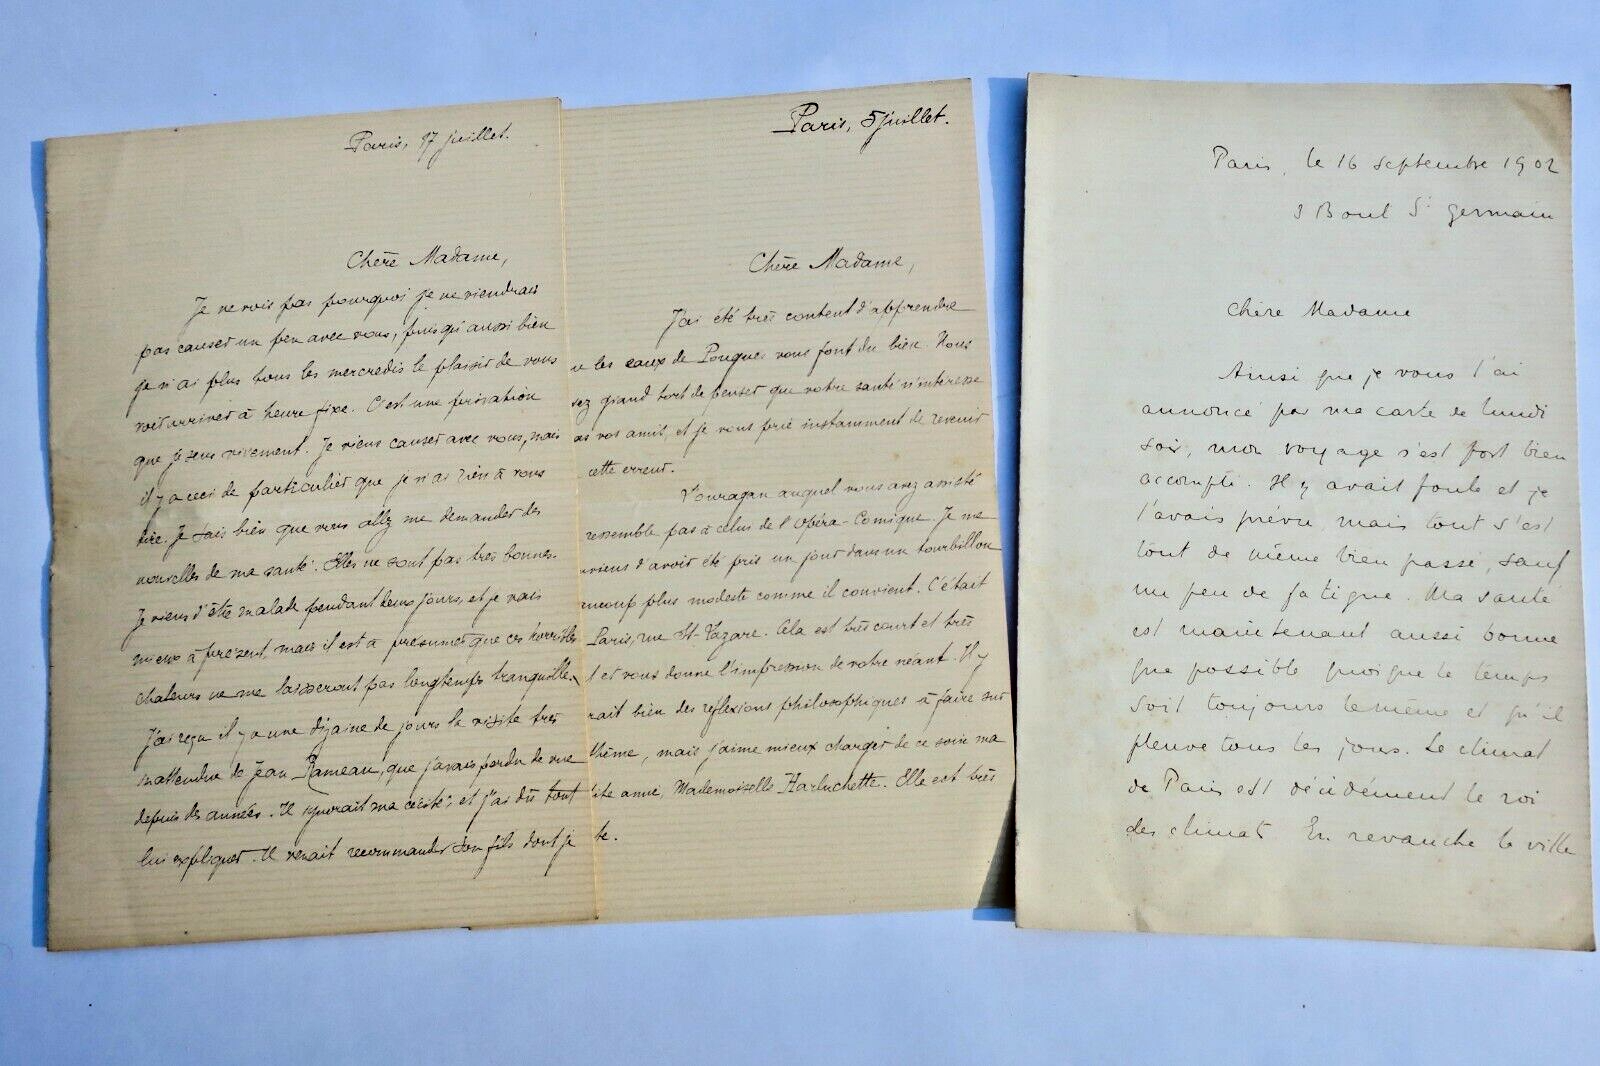 Paris, 17 juillet.
Chère Madame,
Je ne vois pas pourquoi je ne viendrais
pas causer un peu avec vous, puisqu'aussi bien
je n'ai plus tous les mercredis le plaisir de vous
voir arriver à heure fixe. C'est une privation
que je sens vivement. Je viens causer avec vous, mais
il y a ceci de particulier que je n'ai rien à vous
dire. Je sais bien que vous allez me demander des
nouvelles de ma santé. Elles ne sont pas très bonnes.
Je viens d'être malade pendant deux jours, et je vais
mieux à présent, mais il est à présumer que ces horribles
chaleurs ne me laisseront pas longtemps tranquille.
J'ai reçu il y a une dizaine de jours la visite très
inattendue de Jean Rameau, que j'avais perdu de vue
depuis des années. Il ignorait ma cécité, et j'ai dû tout
lui expliquer. Il venait recommander son fils dont je
Paris, 5 juillet.
Chère Madame,
J'ai été très content d'apprendre
ue les eaux de Pougues vous font du bien. Vous
vez grand tort de penser que votre santé n'intéresse
as vos amis, et je vous prie instamment de revenir
cette erreur.
L'ouragan auquel vous avez assisté
ressemble pas à celui de l'Opéra-Comique. Je me
uviens d'avoir été pris un jour dans un tourbillon
aucoup plus modeste comme il convient. C'était
Paris, rue St-Lazare. Cela est très court et très
t et vous donne l'impression de votre néant. Il y
rait bien des réflexions philosophiques à faire sur
thème, mais j'aime mieux charger de ce soin ma
tite amie, Mademoiselle Harluchette. Elle est très
te.
Paris, le 16 septembre 1902
3 Boul St Germain
Chère Madame
Ainsi que je vous l'ai
annoncé par ma carte de lundi
soir, mon voyage s'est fort bien
accompli. Il y avait foule et je
l'avais prévu, mais tout s'est
tout de même bien passé, sauf
un peu de fatigue. Ma santé
est maintenant aussi bonne
que possible quoique le temps
soit toujours le même et qu'il
pleuve tous les jours. Le climat
de Paris est décidément le roi
des climat En revanche la ville